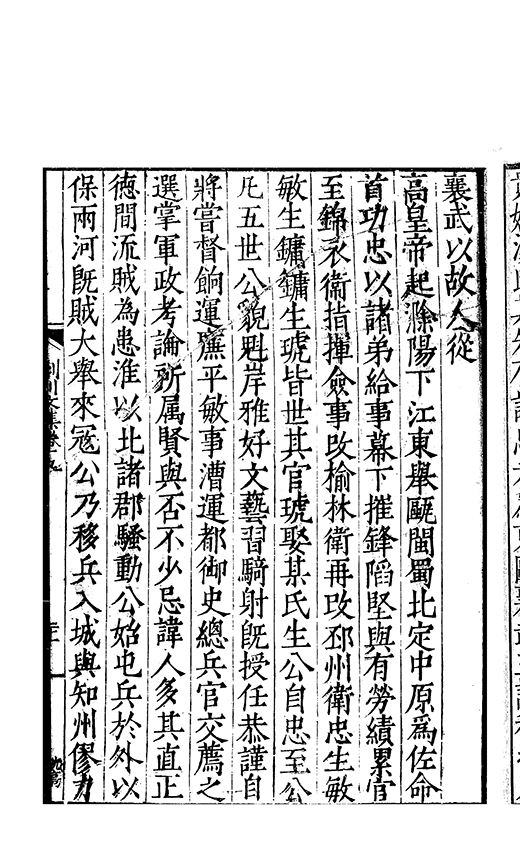 襄武以故人從
高皇帝起滁陽下江東舉甌閩蜀北定中原爲佐命
首功忠以諸弟給事幕下摧鋒䧟堅與有勞績累官
至錦衣衛指揮僉事改榆林衛再改邳州衛忠生敏
敏生鏞鏞生琥皆世其官琥娶某氏生公自忠至公
凡五世公貌魁岸雅好文藝習騎射旣授任恭謹自
將嘗督餉運廉平敏事漕運都御史總兵官交薦之
選掌軍政考論所属賢與否不少忌諱人多其直正
德間流賊為患淮以北諸郡騷動公始屯兵於外以
保兩河旣賊大舉來冦公乃移兵入城與知州僇力